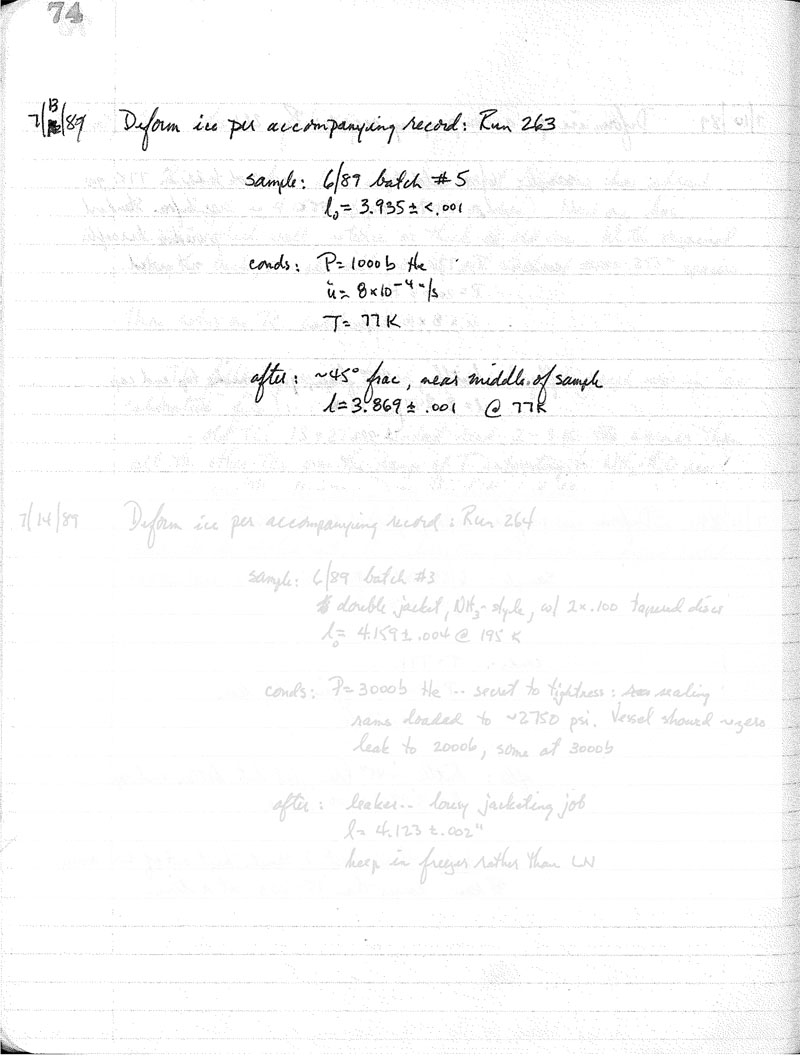 74
7/13/89 Deform ice per accompanying record: Run 263
sample: 6/89 batch #5
l₀ = 3.935 ± <.001
conds: P = 1000b He
u̇ = 8×10⁻⁴ "/s
T = 77K
after: ~45° frac, near middle of sample
l = 3.869 ± .001 @ 77K
7/14/89 Deform ice per accompanying record: Run 264
sample: 6/89 batch #3
double jacket, NH₃-style, w/ 2×.100 tapered discs
l₀ = 4.159 ± .004 @ 195 K
conds: P = 3000b He -- secret to tightness: sealing
rams loaded to ~2750 psi. Vessel showed ~zero
leak to 2000b, some at 3000b
after: leaker -- lousy jacketing job
l = 4.123 ± .002"
keep in freezer rather than LN